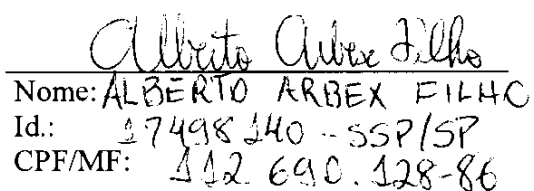 Alberto Arbex Filho
Nome: ALBERTO ARBEX FILHO
Id.: 17498140 - SSP/SP
CPF/MF: 112.690.128-86